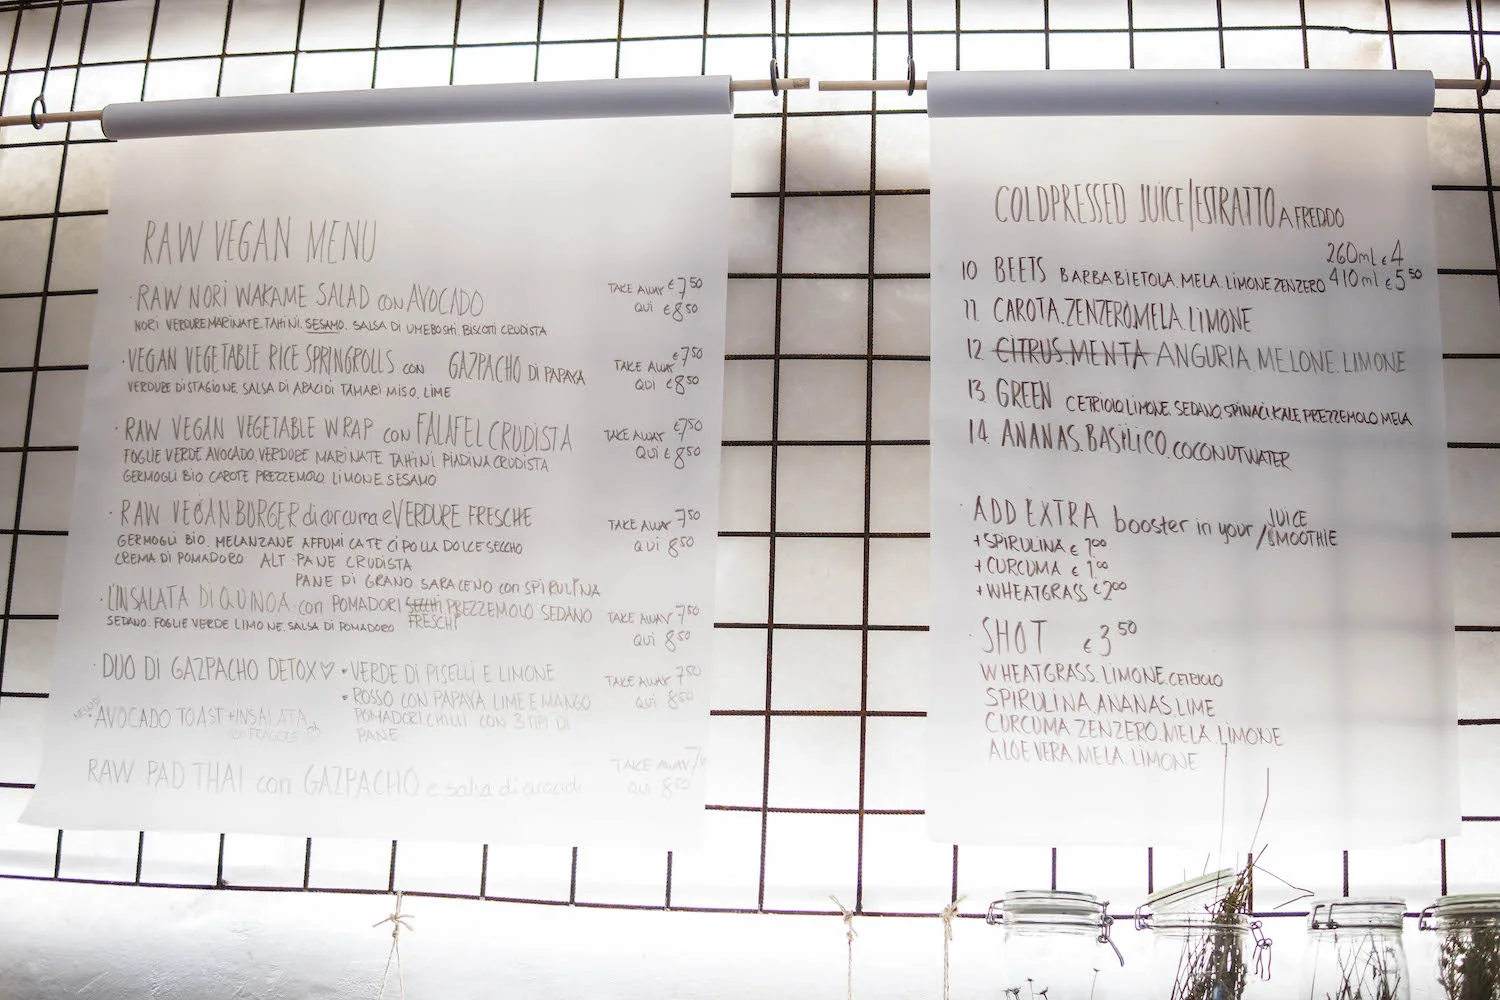 RAW VEGAN MENU
· RAW NORI WAKAME SALAD con AVOCADO TAKE AWAY €7 50
NORI VERDURE MARINATE. TAHINI. SESAMO. SALSA DI UMEBOSHI. BISCOTTI CRUDISTA QUI €8 50
· VEGAN VEGETABLE RICE SPRINGROLLS con GAZPACHO DI PAPAYA TAKE AWAY €7 50
VERDURE DI STAGIONE, SALSA DI TAMARI MISO, LIME QUI €8 50
· RAW VEGAN VEGETABLE WRAP con FALAFEL CRUDISTA TAKE AWAY €7 50
FOGLIE VERDE AVOCADO VERDURE MARINATE TAHINI PIADINA CRUDISTA QUI €8 50
GERMOGLI BIO CAROTE PREZZEMOLO LIMONE SESAMO
· RAW VEGAN BURGER di curcuma e VERDURE FRESCHE TAKE AWAY 7 50
GERMOGLI BIO. MELANZANE AFFUMICATE CIPOLLA DOLCE SECCHO QUI 8 50
CREMA DI POMADORO ALT · PANE CRUDISTA
PANE DI GRANO SARACENO con SPIRULINA
· L'INSALATA DI QUINOA con POMADORI SECCHI PREZZEMOLO SEDANO TAKE AWAY 7 50
FRESCHI
SEDANO. FOGLIE VERDE LIMONE. SALSA DI POMADORO QUI 8 50
· DUO DI GAZPACHO DETOX ♡ • VERDE DI PISELLI E LIMONE TAKE AWAY 7 50
• ROSSO CON PAPAYA LIME E MANGO QUI 8 50
POMADORI CHILLI CON 3 TIPI DI
PANE
AVOCADO TOAST + INSALATA
con FRAGOLE
RAW PAD THAI con GAZPACHO e salsa di TAKE AWAY
QUI 8 50
COLDPRESSED JUICE/ESTRATTO A FREDDO
260ml € 4
10 BEETS BARBABIETOLA. MELA. LIMONE ZENZERO 410ml € 5 50
11. CAROTA. ZENZERO. MELA. LIMONE
12 CITRUS. MENTA ANGURIA. MELONE. LIMONE
13. GREEN CETRIOLO LIMONE. SEDANO, SPINACI. KALE, PREZZEMOLO MELA
14. ANANAS. BASILICO. COCONUTWATER
· ADD EXTRA booster in your JUICE / SMOOTHIE
+ SPIRULINA € 1 00
+ CURCUMA € 1 00
+ WHEATGRASS € 2 00
· SHOT € 3 50
WHEATGRASS. LIMONE. CETRIOLO
SPIRULINA. ANANAS. LIME
CURCUMA. ZENZERO. MELA. LIMONE
ALOE VERA. MELA. LIMONE